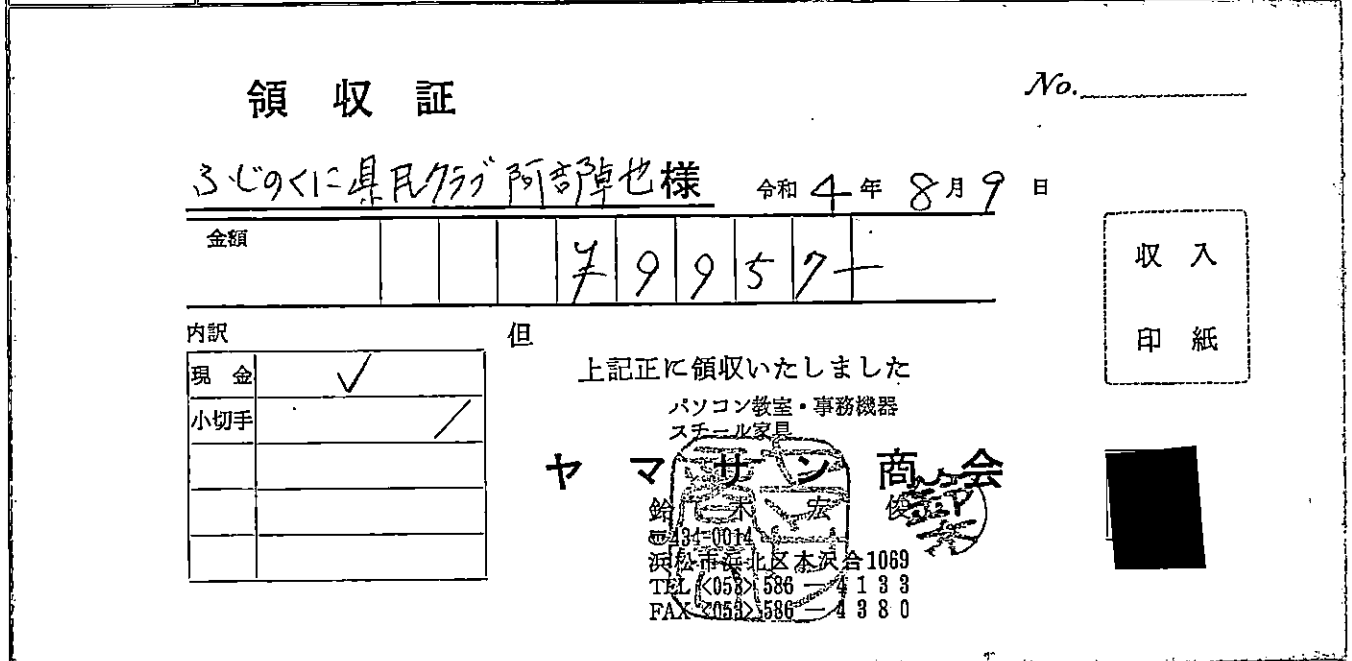 領収証
No.
ふじのくに県民クラブ 阿部卓也様 令和4年8月9日
金額 ¥9957-
内訳
但
現金 ✓
小切手 /
上記正に領収いたしました
収入
印紙
パソコン教室・事務機器
スチール家具
ヤマサン商会
鈴木宏俊
〒434-0014
浜松市浜北区本沢合1069
TEL<053>586-4133
FAX<053>586-4380